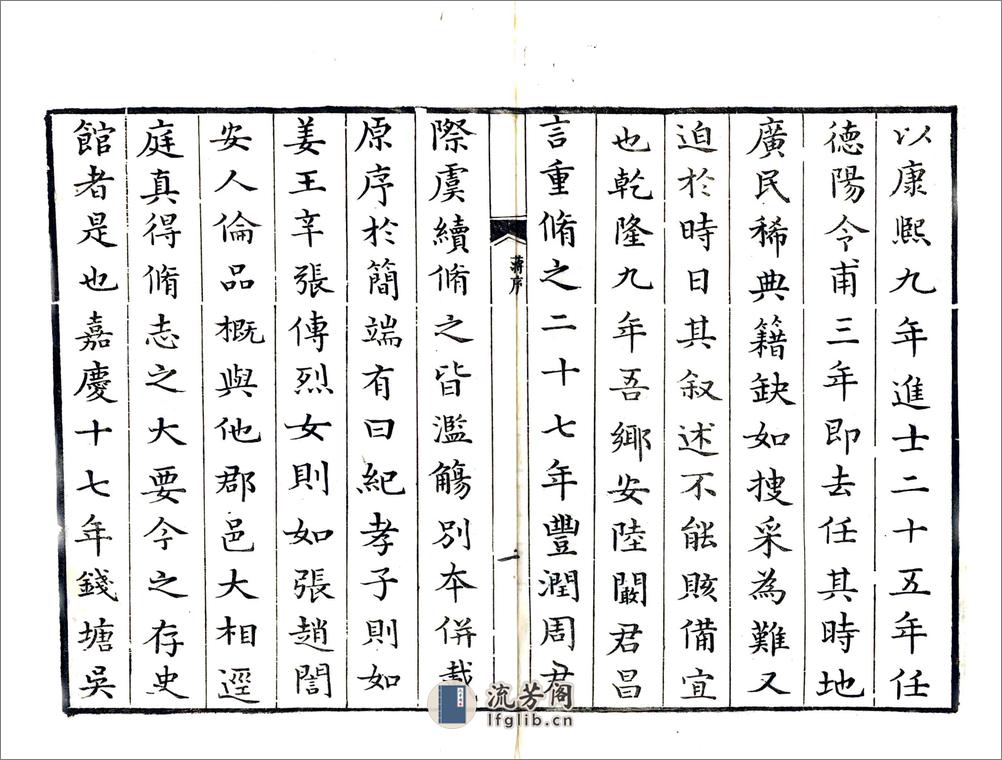 以康熙九年進士二十五年任
德陽令甫三年即去任其時地
廣民稀典籍缺如搜采為難又
迫於時日其叙述不能賅備宜
也乾隆九年吾鄉安陸闞君昌
言重脩之二十七年豐潤周君
蔣序
一
際虞續脩之皆濫觴別本併載
原序於簡端有曰紀孝子則如
姜王辛張傳烈女則如張趙誾
安人倫品概與他郡邑大相逕
庭真得脩志之大要今之存史
館者是也嘉慶十七年錢塘吳
流芳阁
lfglib.cn